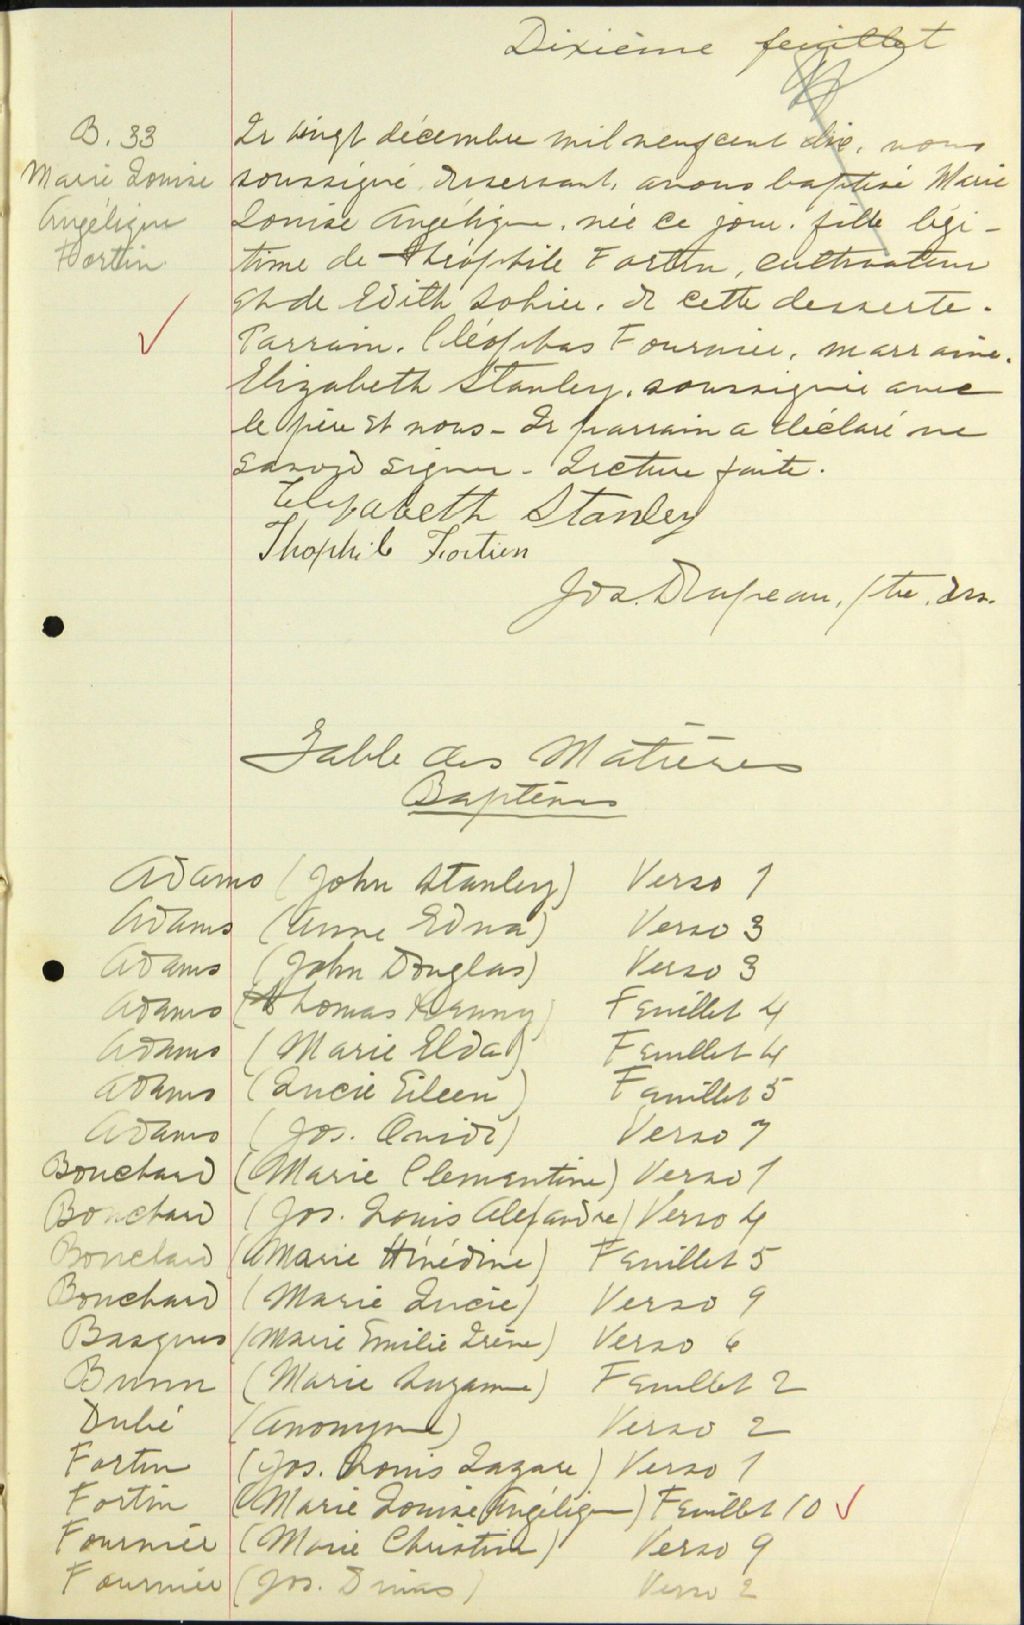 Dixième feuillet
B. 33
Marie Louise
Angélique
Fortin
Le vingt décembre mil neuf cent dix, nous
soussigné desservant, avons baptisé Marie
Louise Angélique, née ce jour, fille légi-
time de Théophile Fortin, cultivateur
et de Edith Sohier, de cette desserte.
Parrain, Cléophas Fournier, marraine,
Elizabeth Stanley, soussignée avec
le père et nous - Le parrain a déclaré ne
savoir signer - Lecture faite.
Elizabeth Stanley
Thophile Fortien
Jos. Drapeau, ptre, des.
Table des Matières
Baptêmes
Adams (John Stanley) Verso 1
Adams (Anne Edna) Verso 3
Adams (John Douglas) Verso 3
Adams (Thomas) Feuillet 4
Adams (Marie Elda) Feuillet 4
Adams (Lucie Eileen) Feuillet 5
Adams (Jos. Ovide) Verso 7
Bouchard (Marie Clementine) Verso 1
Bouchard (Jos. Louis Alexandre) Verso 4
Bouchard (Marie Hénédine) Feuillet 5
Bouchard (Marie Lucie) Verso 9
Basques (Marie Emilie Irène) Verso 6
Bunn (Marie Suzanne) Feuillet 2
Dubé (Anonyme) Verso 2
Fortin (Jos. Louis Lazare) Verso 1
Fortin (Marie Louise Angélique) Feuillet 10
Fournier (Marie Christine) Verso 9
Fournier (Jos. Dumas) Verso 2